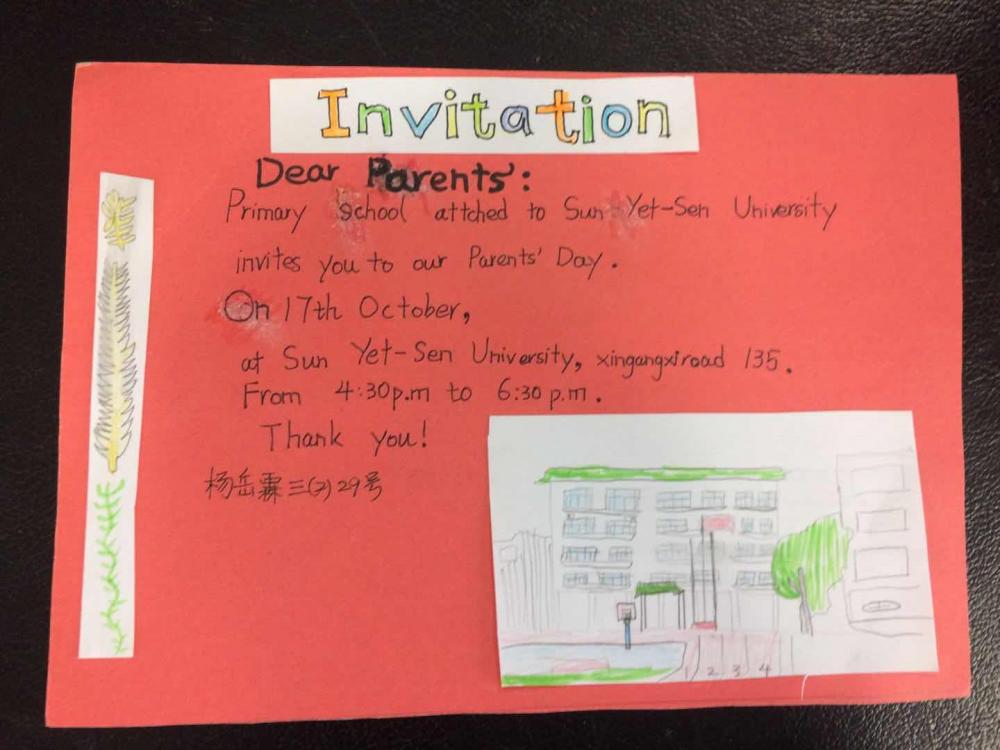 Invitation
Dear Parents':
Primary school attched to Sun-Yet-Sen University
invites you to our Parents' Day.
On 17th October,
at Sun Yet-Sen University, xingangxiroad 135.
From 4:30p.m to 6:30 p.m.
Thank you!
杨岳霖三(2)29号
1 2 3 4